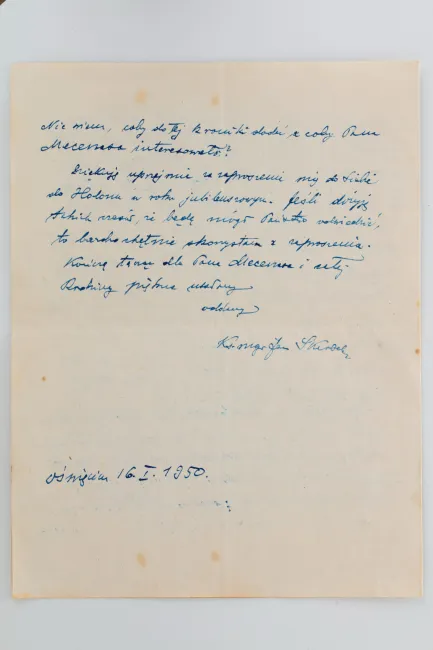 Nie wiem, coby do tej kroniki dodać z coby Pana
Mecenasa interesowało?
Dziękuję uprzejmie za zaproszenie mię do Siebie
do Holonu w roku jubileuszowym. Jeśli dożyję
takich czasów, że będę mógł Państwo odwiedzić,
to bardzo chętnie skorzystam z zaproszenia.
Kończę łącząc dla Pana Mecenasa i całej
Rodziny piękne ukłony
oddany
Jan
Oświęcim 16. I. 1950.